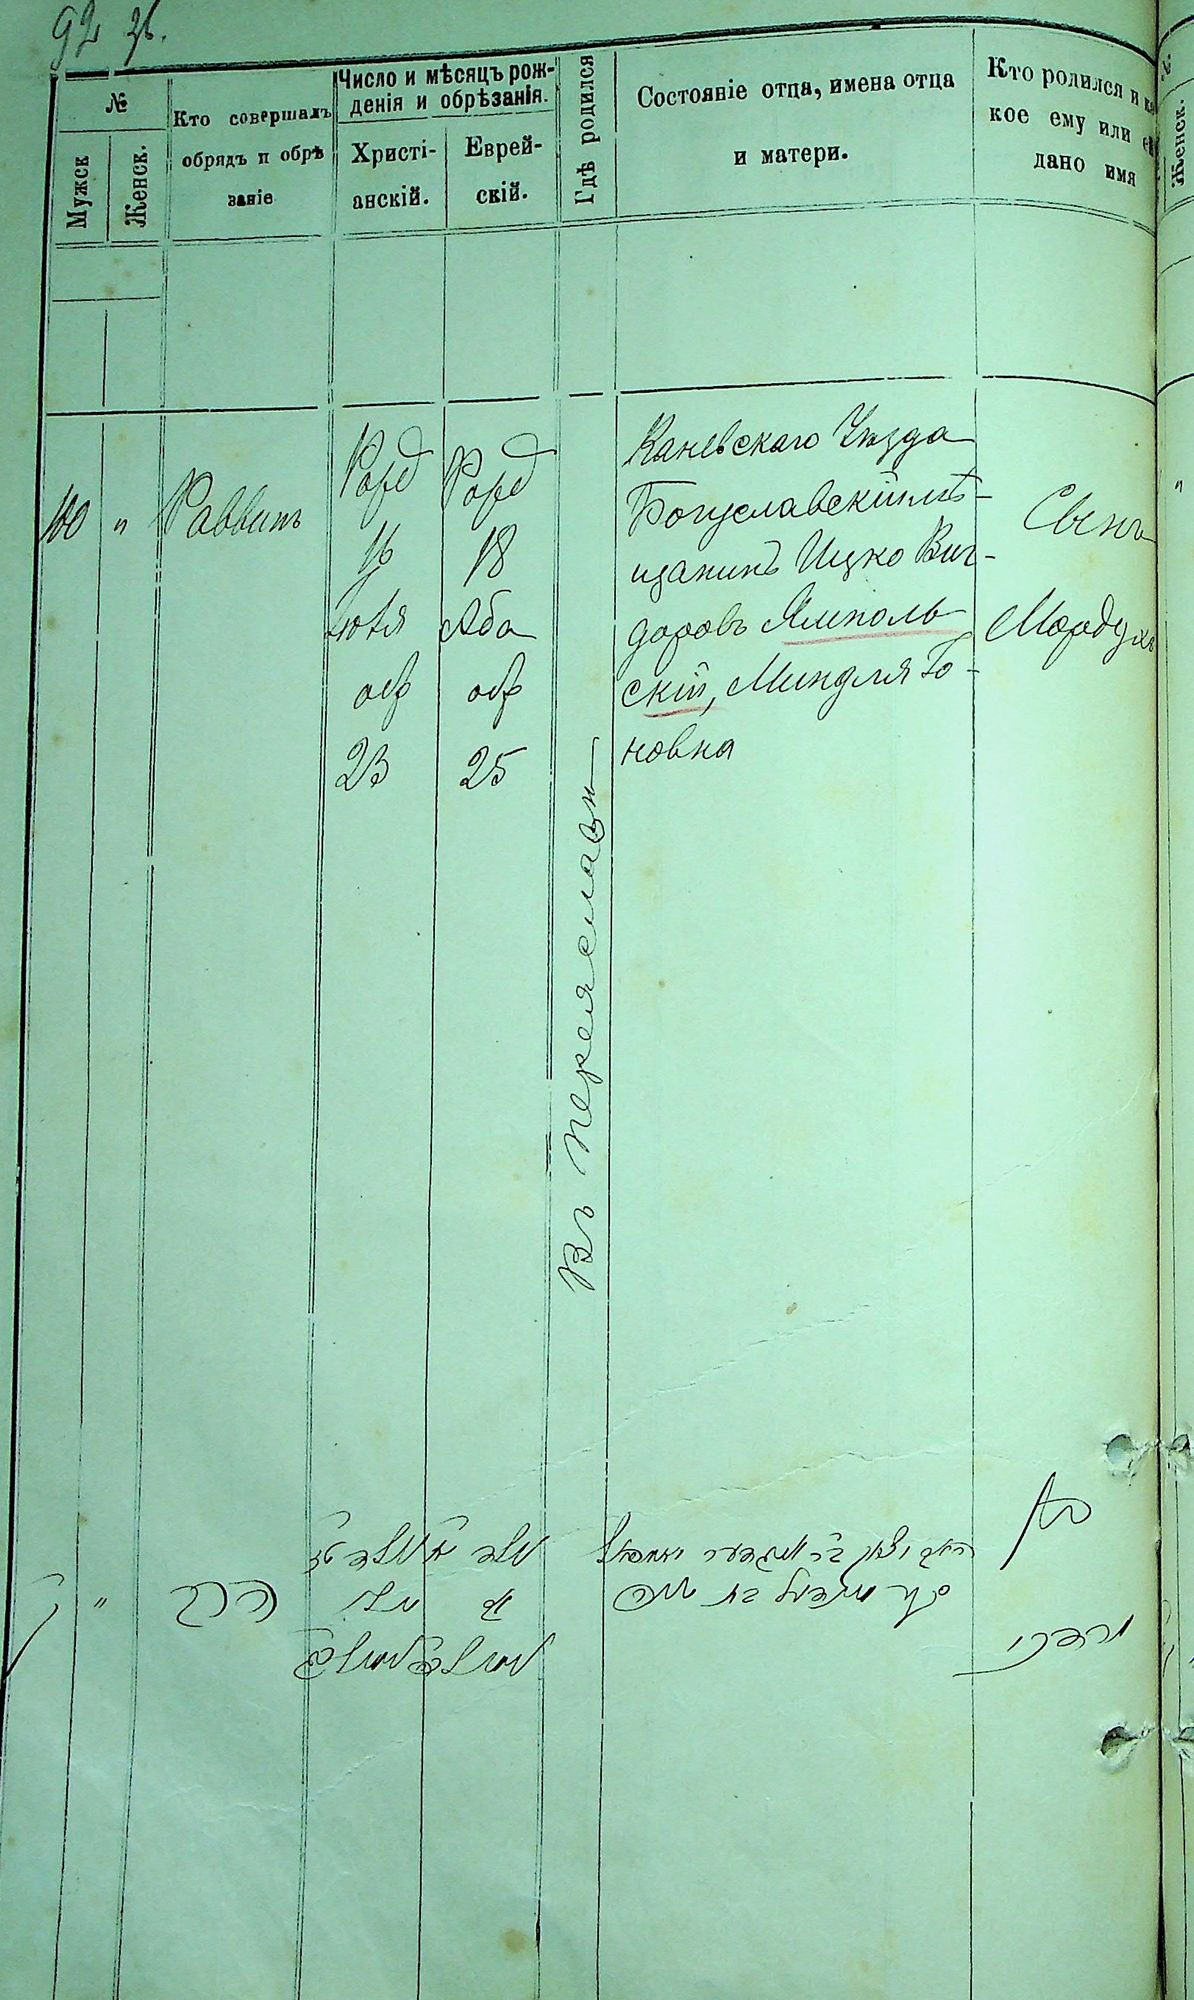 92 об.
№
Мужск
Женск.
Кто совершалъ
обрядъ п обрѣ
заніе
Число и мѣсяцъ рож-
денія и обрѣзанія.
Христі-
анскій.
Еврей-
скій.
Гдѣ родился
Состояніе отца, имена отца
и матери.
Кто родился и ка
кое ему или ей
дано имя
Женск.
100 " Раввинъ
Рожд
16
Іюля
обр
23
Рожд
18
Аба
обр
25
Въ Переяславѣ
Каневскаго Уѣзда
Богуславскій мѣ-
щанинъ Ицко Виг-
доровъ Ямполь
скій, Миндля Го-
новна
Сынъ
Мордухъ
ק " הרב
נולד
נולד
בן
מרדכי